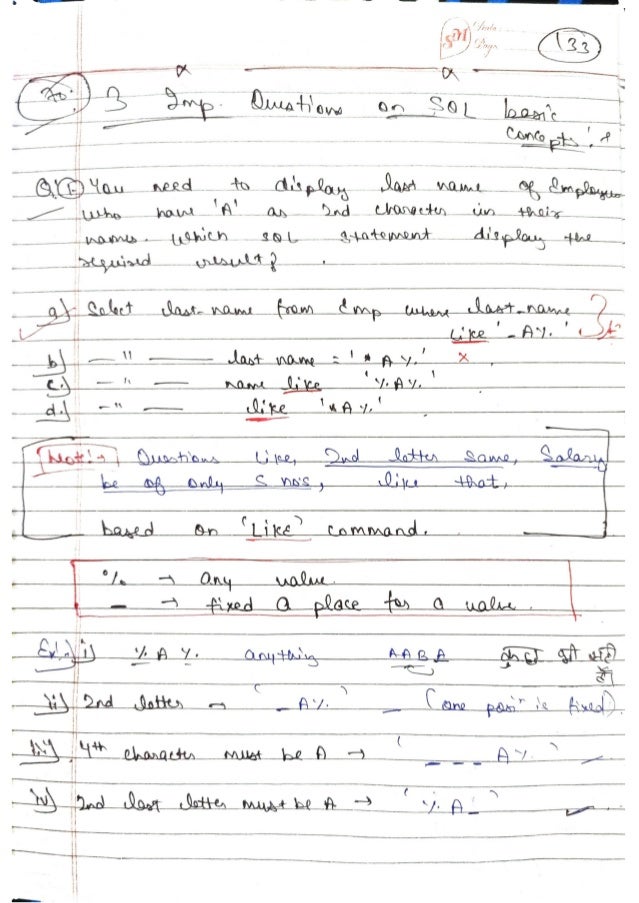 SM Date
Page
133
70:) 3 Imp. Questions on SQL basic
concepts :→
Q.1 You need to display last name of Employees
who have 'A' as 2nd character in their
names. Which SQL statement display the
required result?
a) Select last-name from Emp where last-name
like '_A%.'
b) —"— last name = '*A%.' ×
c.) —"— name like '%A%.'
d.) —"— like '*A%.'
Note:→ Questions like, 2nd letter same, Salary
be of only 5 no's, like that,
based on 'Like' command.
% → any value.
_ → fixed a place for a value.
Ex:→ i) %A%. anything AABA कुछ भी नहीं
है।
ii) 2nd letter → '_A%.' _ (one posn is fixed).
iii) 4th character must be A → '_ _ _ A%.'
iv) 2nd last letter must be A → '%A_'